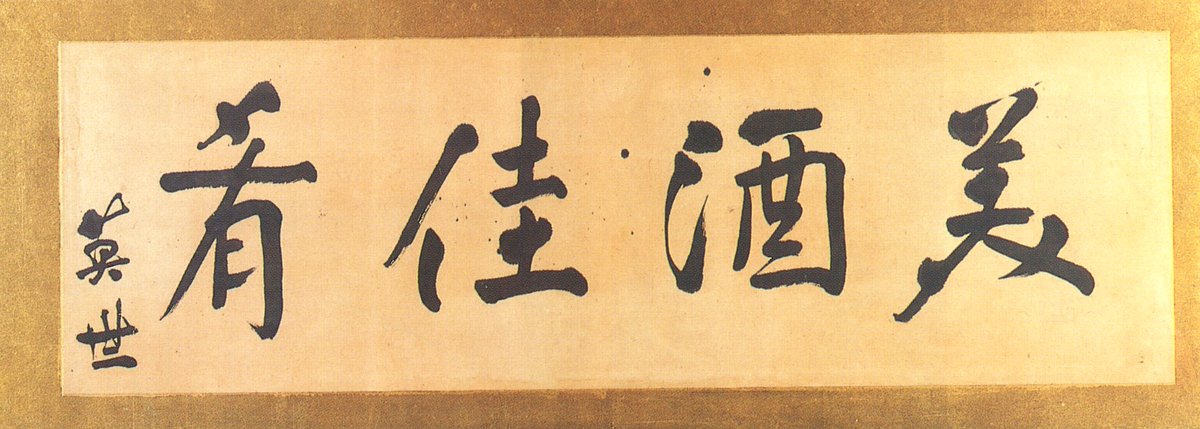 美酒佳肴
英世